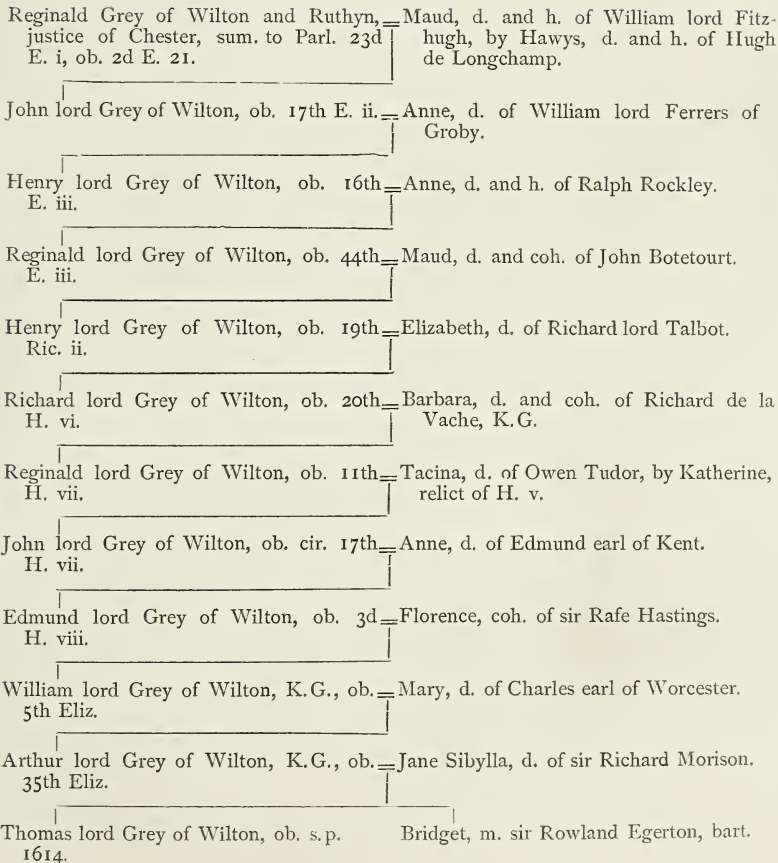 Reginald Grey of Wilton and Ruthyn,
justice of Chester, sum. to Parl. 23d
E. i, ob. 2d E. 21.
Maud, d. and h. of William lord Fitz-
hugh, by Hawys, d. and h. of Hugh
de Longchamp.
John lord Grey of Wilton, ob. 17th E. ii.
Anne, d. of William lord Ferrers of
Groby.
Henry lord Grey of Wilton, ob. 16th
E. iii.
Anne, d. and h. of Ralph Rockley.
Reginald lord Grey of Wilton, ob. 44th
E. iii.
Maud, d. and coh. of John Botetourt.
Henry lord Grey of Wilton, ob. 19th
Ric. ii.
Elizabeth, d. of Richard lord Talbot.
Richard lord Grey of Wilton, ob. 20th
H. vi.
Barbara, d. and coh. of Richard de la
Vache, K.G.
Reginald lord Grey of Wilton, ob. 11th
H. vii.
Tacina, d. of Owen Tudor, by Katherine,
relict of H. v.
John lord Grey of Wilton, ob. cir. 17th
H. vii.
Anne, d. of Edmund earl of Kent.
Edmund lord Grey of Wilton, ob. 3d
H. viii.
Florence, coh. of sir Rafe Hastings.
William lord Grey of Wilton, K.G., ob.
5th Eliz.
Mary, d. of Charles earl of Worcester.
Arthur lord Grey of Wilton, K.G., ob.
35th Eliz.
Jane Sibylla, d. of sir Richard Morison.
Thomas lord Grey of Wilton, ob. s.p.
1614.
Bridget, m. sir Rowland Egerton, bart.